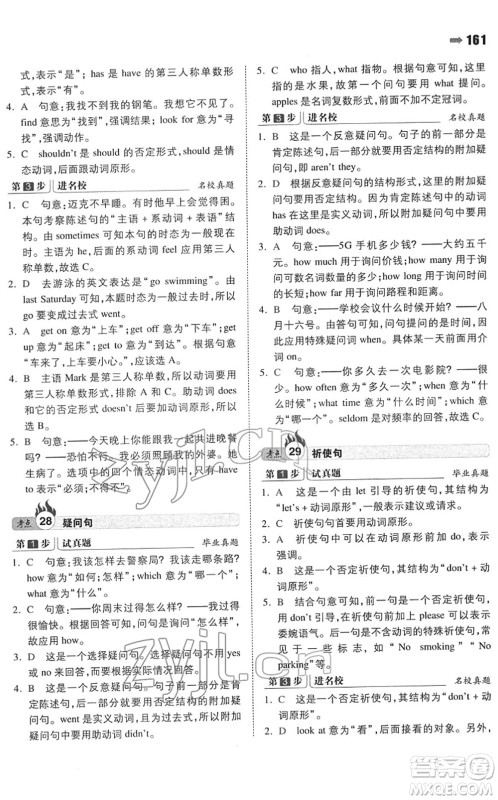 ➡ 161
式,表示“是”; has 是 have 的第三人称单数形
式,表示“有”。
4. A 句意:我找不到我的钢笔。打扰一下。
find 意思为“找到”,强调结果; look for 意为“寻
找”,强调动作。
5. C shouldn't 是 should 的否定形式,是情
态动词,后面跟动词原形。
第3步 进名校 名校真题
1. C 句意:迈克不早睡。有时他早上觉得困。
本句考察陈述句的“主语 + 系动词 + 表语”结
构。由 sometimes 可知本句的时态为一般现在
时。主语为 he,后面的系动词 feel 应用第三人
称单数形式,故选 C。
2. D 去游泳的英文表达是“go swimming”。由
last Saturday 可知,本题时态为一般过去时,所以
go 要变成过去式 went。
3. A get on 意为“上车”; get off 意为“下车”;
get up 意为“起床”; get to 意为“到达”。根据句
意“来上车吧!”可知,故选 A。
4. B 主语 Mark 是第三人称单数,所以动词要用第
三人称单数形式,排除 A 和 C。助动词 does
和它的否定形式 doesn't 后要加动词原形,
故选 B。
5. B 句意:——今天晚上你能和我一起共进晚餐
吗?——恐怕不行。我必须照顾我的外婆。她
生病了。选项中的情态动词后面都跟动词原形。
考点28 疑问句
第1步 试真题 毕业真题
1. C 句意:我该怎样去警察局?我走哪条路?
how 意为“如何;怎样”, which 意为“哪一个”,
what 意为“什么”。
2. C 句意:——你周末过得怎么样?——我过得
很愉快。 How 引导的特殊疑问句用来询问感
受;根据答句“很愉快”可知,问句是询问“周末
过得如何”。 Which 询问“哪一个”。
3. A 这是一个选择疑问句。选择疑问句不用 yes
或 no 来回答,而应根据实际情况选择回答。
4. B 这是一个反意疑问句,句子的前一部分是肯
定陈述句,后面的附加疑问句要用否定形式。
went 是 go 的过去式,此处表示过去,所以附加疑
问句中要用助动词 didn't。
5. C who 指人, what 指物。根据句意可知,这
里的水果是物,故第一个问句用 what 提问。
apples 是名词复数形式,前面不加不定冠词。
第3步 进名校 名校真题
1. B 这是一个反意疑问句。句子的前一部分是
肯定陈述句,后面的附加疑问句要用否定形式。
因为肯定陈述句中用动词 does,所以附加疑问
句中要用助动词 does 的否定形式 doesn't。
2. A 句意:——5G 手机多少钱?——大约五千
元。 how much 用于询问价钱; how many 和可
数名词复数连用,用于询问可数名词的数量或
数量的多少; how long 用于询问时间或物体的
长度; how far 用于询问路程和距离。
3. C 句意:——学校会议什么时候开始?——
八月十六号。由答句可知,问句提问的是时间,
故应用特殊疑问词 when。
4. C 句意:——你多久去一次电影院?——我
很少去。 how often 意为“多久一次”; when 意
为“什么时候”; what time 意为“什么时间”;
which 意为“哪一个”。 seldom 是对频率的回答,故选 C。
考点29 祈使句
第1步 试真题 毕业真题
1. A 这是一个由 let 引导的祈使句,其结构为
“let's + 动词原形”,表示建议或请求。
2. C 这是一个否定祈使句,其结构为“don't + 动
词原形”。
3. A 这是一个否定祈使句,需要用 don't 引导,
后面跟动词原形。
4. B 这是一个否定祈使句,其结构为“don't + 动
词原形”。
5. B 结合句意可知,前一句是一个否定祈使句,
其结构为“don't + 动词原形”;后面一句表示
委婉语气。不能加动词的特殊祈使句,常见
于一些标志,如“No smoking”“No
parking”等。
第3步 进名校 名校真题
1. C 这是一个否定祈使句,其结构为“don't + 动
词原形”。
2. D look at 意为“看”,后面加看的对象。另外,
zyj1.cn
zyjl.cn
答案圈
MXQE.COM